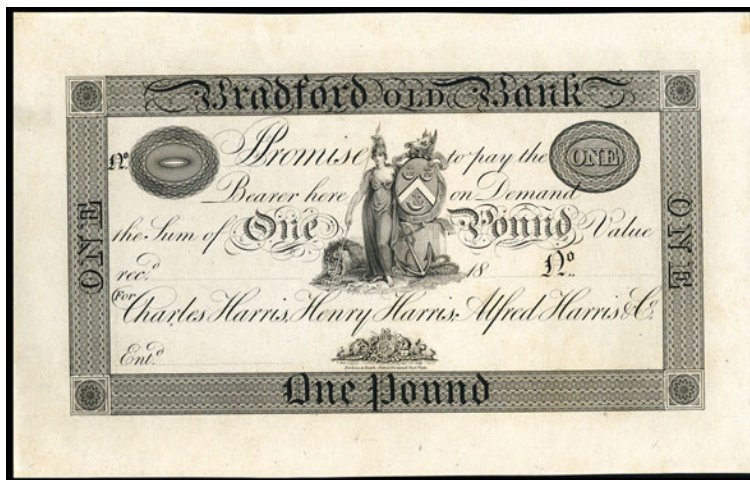 Bradford OLD Bank
Nº. I Promise to pay the ONE
Bearer here on Demand
the Sum of One Pound Value
rec.d 18 Nº.
For Charles Harris, Henry Harris, Alfred Harris & Co.
Ent.d
One Pound
ONE
ONE